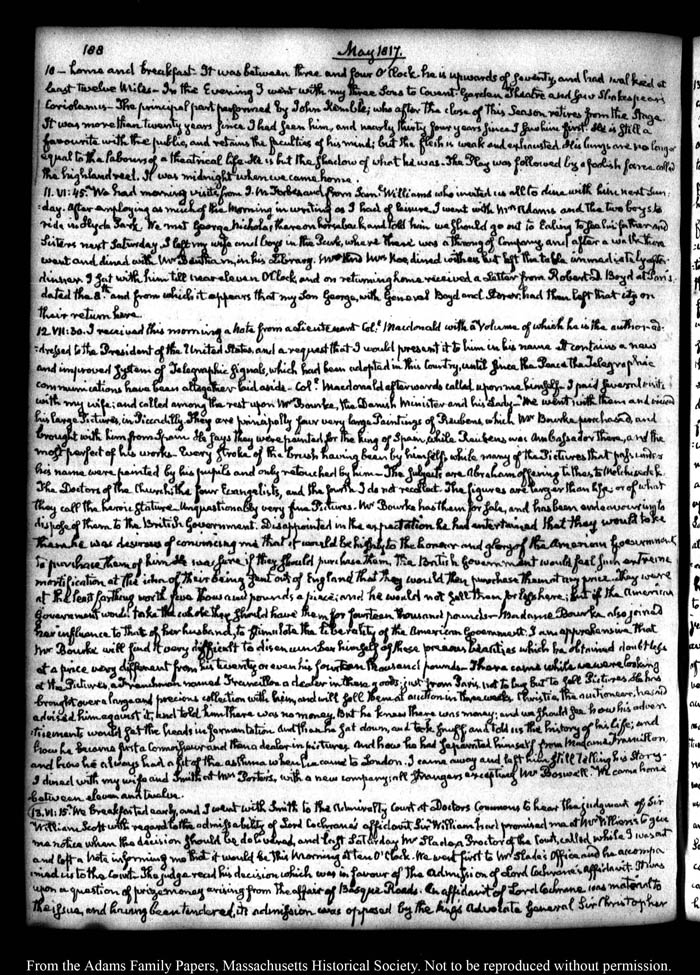 188
May 1817.
10 – home and breakfast. It was between three and four O'Clock he is upwards of seventy, and had walked at
least twelve Miles – In the Evening I went with my three Sons to Covent-Garden Theatre and saw Shakespear's
Coriolanus – The principal part performed by John Kemble; who after the close of this Season retires from the Stage.
It was more than twenty years since I had seen him, and nearly thirty four years since I saw him first. He is still a
favourite with the public, and retains the faculties of his mind; but the flesh is weak and exhausted. His lungs are no longer
equal to the labours of a theatrical life. He is but the shadow of what he was. The Play was followed by a foolish farce called
the highland reel. It was midnight when we came home.
11. VI:45. We had morning visits from J. M. Forbes and from Saml. Williams who invited us all to dine with him next Sun-
:day. After employing as much of the Morning in writing as I had of leisure, I went with Mrs. Adams and the two boys to
ride in Hyde Park. We met George Nicholas there on horseback, and told him we should go out to Ealing to see his father and
Sisters next Saturday. I left my wife and boys in the Park, where there was a throng of Company, and after a walk there
went and dined with Mr. Bentham, in his Library. Mr. and Mrs. Koe, dined with us but left the table immediately after
dinner. I sat with him till near eleven O'Clock, and on returning home received a Letter from Robert D. Boyd at Paris
dated the 8th. and from which it appears that my Son George, with General Boyd and Storer, had then left that city on
their return here.
12. VII:30. I received this morning a Note from a Lieutenant Coll. Macdonald with a Volume of which he is the author ad-
:dressed to the President of the United States, and a request that I would present it to him in his name. It contains a new
and improved System of Telegraphic Signals, which had been adopted in this Country, until since the Peace the Telegraphic
communications have been altogether laid aside – Coll. Macdonald afterwards called upon me himself – I paid several visits
with my wife; and called among the rest upon Mr. Bourke, the Danish Minister and his Lady – We went with them and viewed
his large Pictures, in Piccadilly. They are principally four very large Paintings of Reubens, which Mr. Bourke purchased, and
brought with him from Spain. He says they were painted for the king of Spain, while Reubens was Ambassador there, and the
most perfect of his works. Every stroke of the brush having been by himself, while many of the Pictures that pass under
his name were painted by his pupils and only retouched by him – The subjects are Abraham offering tithes to Melchisedek.
The Doctors of the Church; the four Evangelists, and the fourth I do not recollect. The figures are larger than life, or of what
they call the heroic stature. Unquestionably very fine Pictures. Mr. Bourke has them for sale, and has been endeavouring to
dispose of them to the British Government. Disappointed in the expectation he had entertained that they would take
them he was desirous of convincing me that it would be highly to the honour and glory of the American Government
to purchase them of him. He was sure if they should purchase them, the British Government would feel such extreme
mortification at the idea of their being sent out of England that they would they purchase them at any price. They were
at the least farthing worth five thousand pounds a piece; and he would not sell them for less here; but if the American
Government would take the whole they should have them for fourteen thousand pounds – Madame Bourke also joined
her influence to that of her husband, to stimulate the liberality of the American Government. I am apprehensive that
Mr. Bourke will find it very difficult to disencumber himself of these precious beauties which he obtained doubtless
at a price very different from his twenty or even his fourteen thousand pounds – There came while we were looking
at the Pictures, a Frenchman named Francillon a dealer in these goods; just from Paris, not to buy but to sell Pictures. He has
brought over a large and precious collection with him, and will sell them at auction in three weeks. Christie, the auctioneer, has
advised him against it, and told him there was no money. But he knew there was money; and we should see how his adver-
:tisements would set the heads in fermentation. And then he sat down, and took snuff, and told us the history of his life; and
how he became first a Connoisseur and then a dealer in pictures. And how he had separated himself from Madame Francillon,
and how he always had a fit of the asthma when he came to London. I came away and left him still telling his Story –
I dined with my wife and Smith at Mr. Porter's, with a new company; all Strangers excepting Mr. Boswell. We came home
between eleven and twelve.
13. VI:15. We breakfasted early, and I went with Smith to the Admiralty Court at Doctors Commons to hear the judgment of Sir
William Scott with regard to the admissibility of Lord Cochrane's affidavit. Sir William had promised me to give
me notice when the decision should be delivered, and last Saturday Mr. Slade, a Proctor of the Court, called while I was out
and left a Note informing me that it would be this Morning at ten O'Clock. We went first to Mr. Slade's Office and he accompa-
nied us to the Court. The judge read his decision which was in favour of the Admission of Lord Cochrane's affidavit. It was
upon a question of prize money arising from the affair of Basque Roads. An affidavit of Lord Cochrane was material to
the issue, and having been tendered, its admission was opposed by the king's Advocate General Sir Christopher
From the Adams Family Papers, Massachusetts Historical Society. Not to be reproduced without permission.